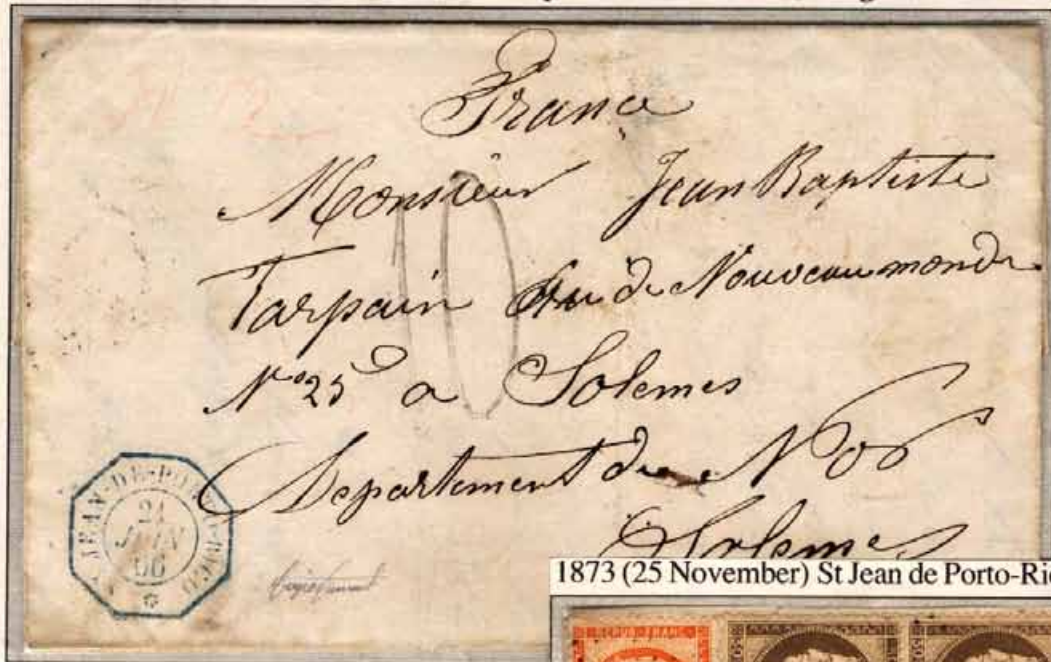 France
Monsieur Jean Baptiste
Tarpain rue de Nouveau monde
N° 25 a Solemes
10
Departement du Nor
Solemes
ST JEAN-DE-PORTO-RICO
24
JUIN
66
1873 (25 November) St Jean de Porto-Ri
REPUB. FRANC.